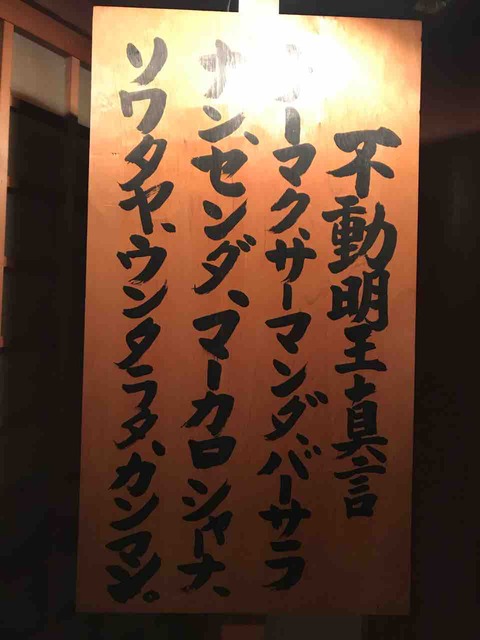 不動明王真言
ノーマク、サーマンダ、バーサラ
ナン、センダ、マーカロシャーナ、
ソワタヤ、ウンタラタ、カンマン。